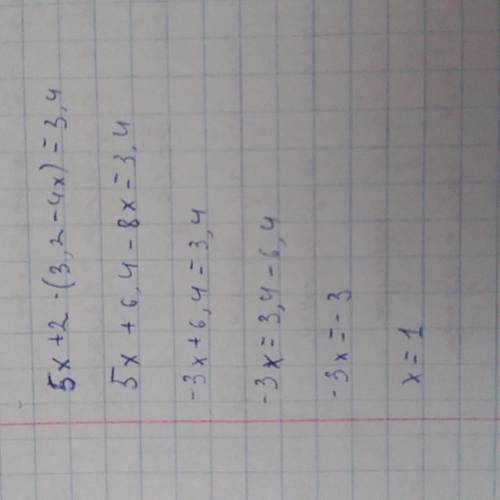 5x+2·(3,2-4x)=3,4
5x+6,4-8x=3,4
-3x+6,4=3,4
-3x=3,4-6,4
-3x=-3
x=1